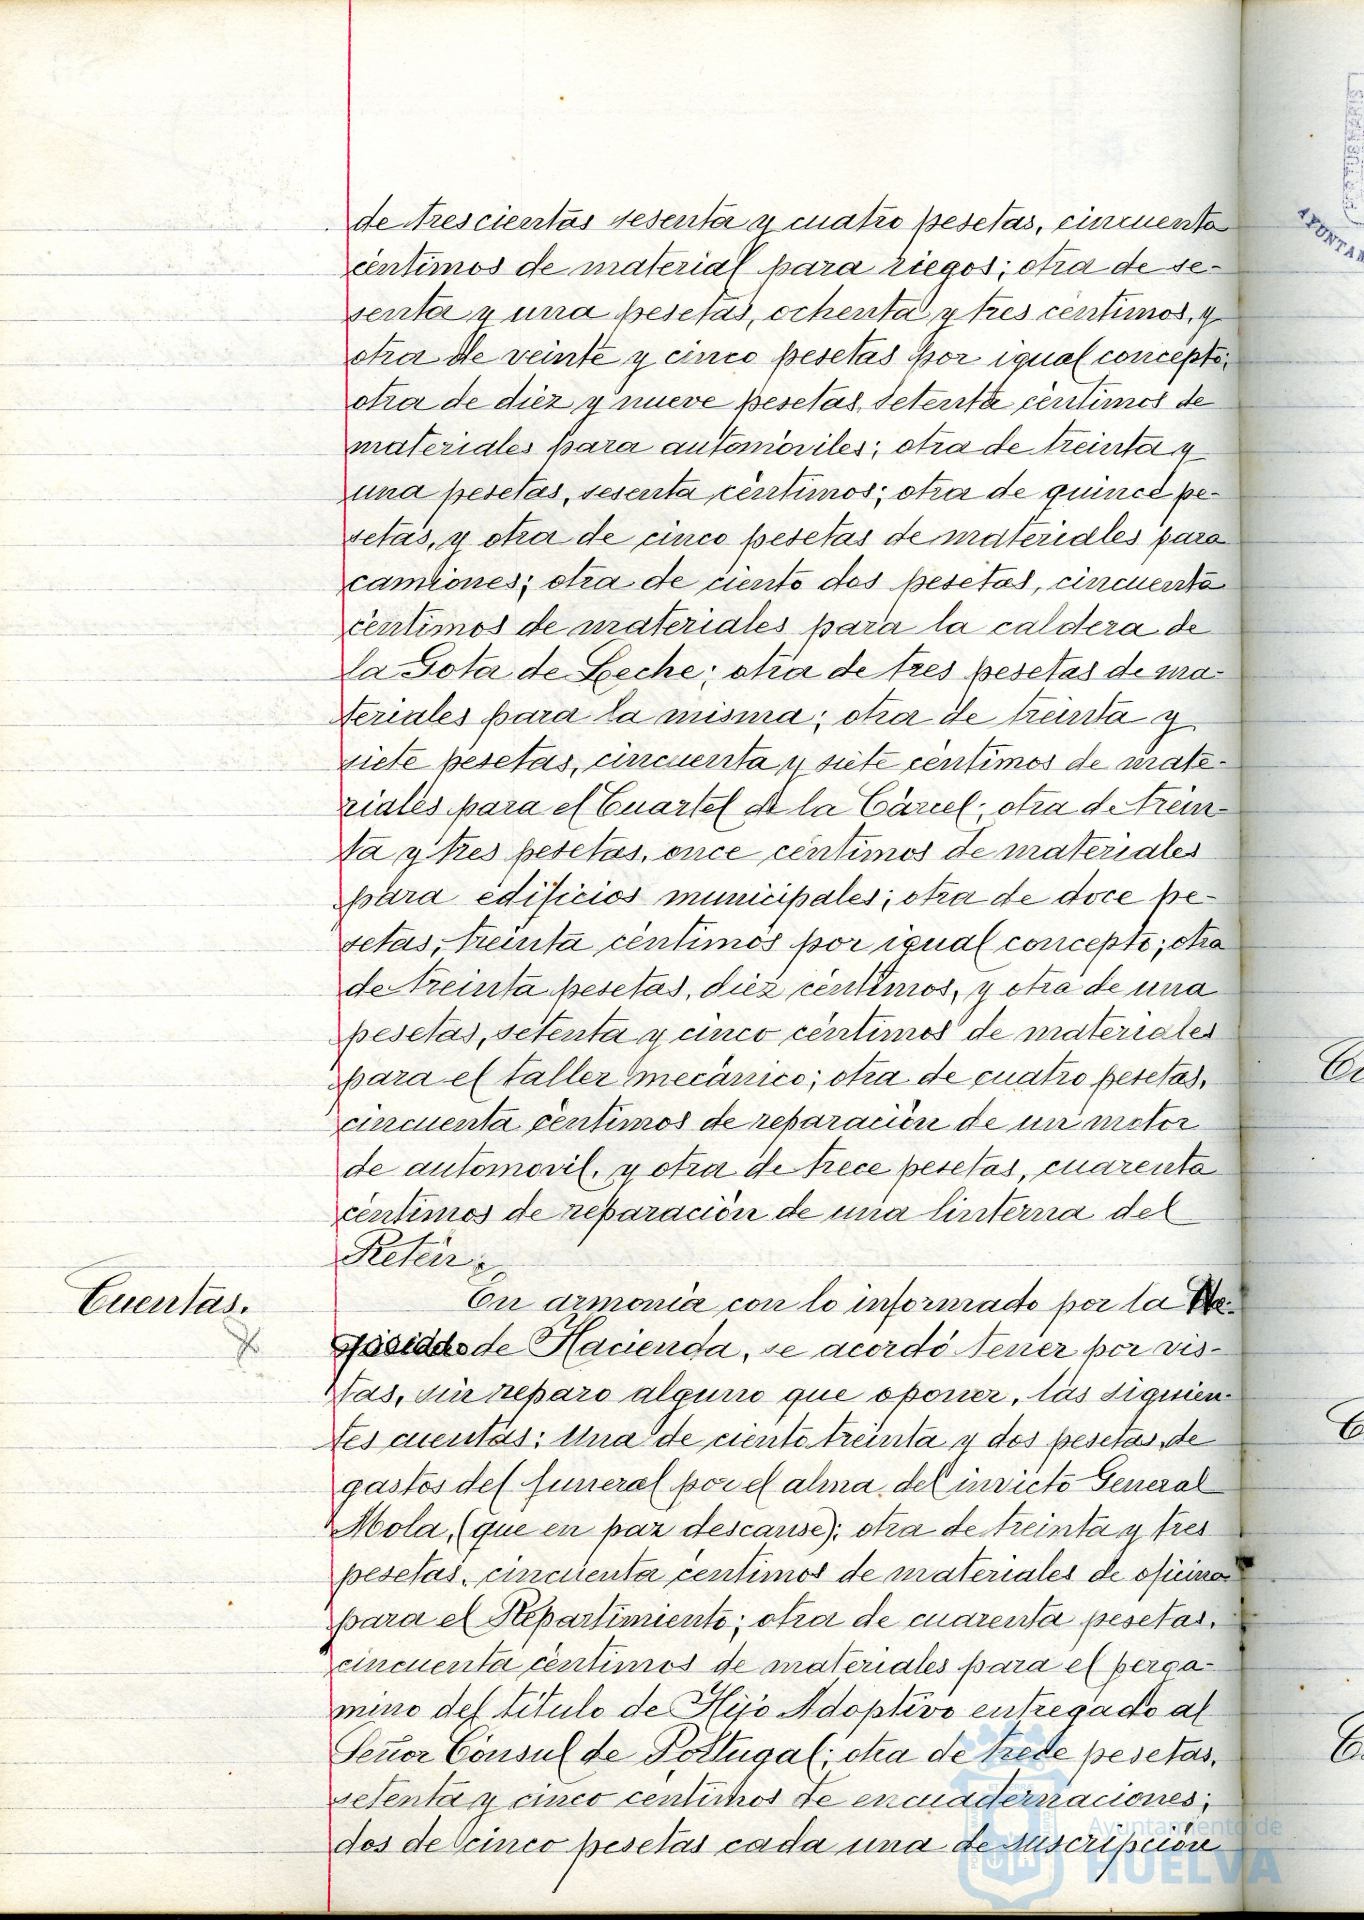 de trescientas sesenta y cuatro pesetas, cincuenta
céntimos de material para riegos; otra de se-
senta y una pesetas, ochenta y tres céntimos, y
otra de veinte y cinco pesetas por igual concepto;
otra de diez y nueve pesetas, setenta céntimos de
materiales para automóviles; otra de treinta y
una pesetas, sesenta céntimos; otra de quince pe-
setas, y otra de cinco pesetas de materiales para
camiones; otra de ciento dos pesetas, cincuenta
céntimos de materiales para la caldera de
la Gota de Leche; otra de tres pesetas de ma-
teriales para la misma; otra de treinta y
siete pesetas, cincuenta y siete céntimos de mate-
riales para el Cuartel de la Cárcel; otra de trein-
ta y tres pesetas, once céntimos de materiales
para edificios municipales; otra de doce pe-
setas, treinta céntimos por igual concepto; otra
de treinta pesetas, diez céntimos, y otra de una
pesetas, setenta y cinco céntimos de materiales
para el taller mecánico; otra de cuatro pesetas,
cincuenta céntimos de reparación de un motor
de automovil, y otra de trece pesetas, cuarenta
céntimos de reparación de una linterna del
Retén.
Cuentas.
En armonía con lo informado por la Ne-
gociado de Hacienda, se acordó tener por vis-
tas, sin reparo alguno que oponer, las siguien-
tes cuentas: Una de ciento treinta y dos pesetas, de
gastos del funeral por el alma del invicto General
Mola, (que en paz descanse); otra de treinta y tres
pesetas, cincuenta céntimos de materiales de oficina
para el Repartimiento; otra de cuarenta pesetas,
cincuenta céntimos de materiales para el perga-
mino del título de Hijo Adoptivo entregado al
Señor Cónsul de Portugal; otra de trece pesetas,
setenta y cinco céntimos de encuadernaciones;
dos de cinco pesetas cada una de suscripción
Ayuntamiento de
HUELVA